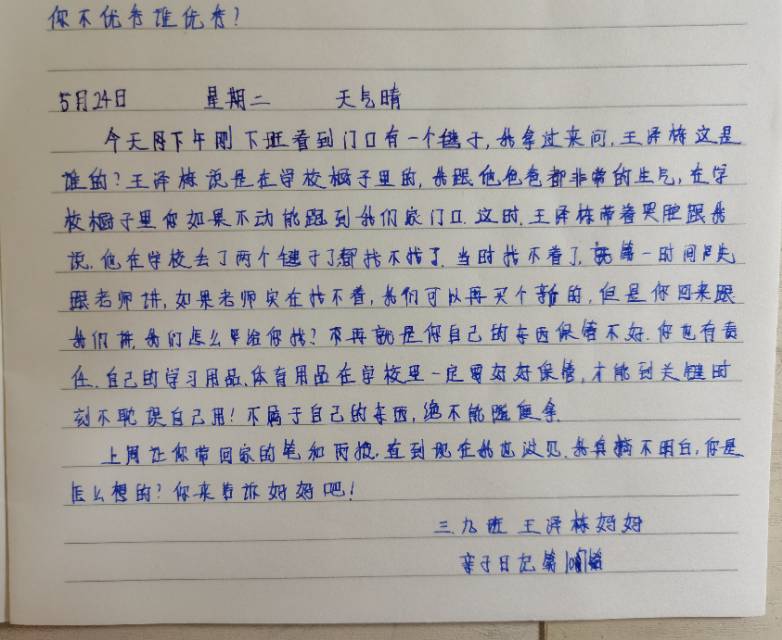 你不优秀谁优秀?
5月24日 星期二 天气晴
今天下午刚下班看到门口有一个毽子,我拿过来问,王泽栋这是
谁的?王泽栋说是在学校柜子里的,我跟他爸爸都非常的生气,在学
校柜子里你如果不动能跑到我们家门口.这时.王泽栋带着哭腔跟我
说.他在学校去了两个毽子了都找不找了.当时找不着了,就第一时间
跟老师讲,如果老师实在找不着,我们可以再买个新的,但是你回来跟
我们讲,我们怎么给你找?不再就是你自己的东西保管不好.你也有责
任.自己的学习用品、体育用品在学校里一定要好好保管,才能到关键时
刻不耽误自己用!不属于自己的东西,绝不能随便拿.
上周让你带回家的笔和雨披.直到现在我也没见.我真搞不明白,你是
怎么想的?你来告诉妈妈吧!
三.九班 王泽栋妈妈
亲子日记第篇